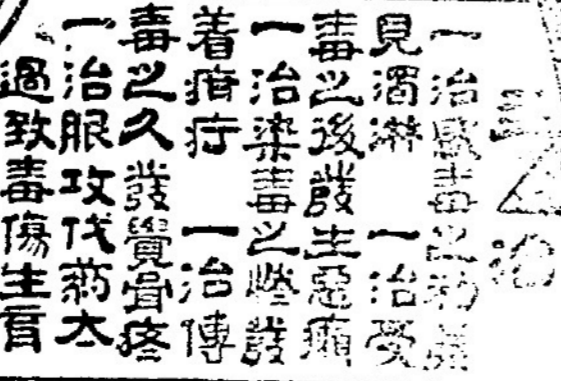 治
一治感毒之初
見濁淋　一治受
毒之後發生惡
一治染毒之發
着疔　一治傳
毒之久發覺骨疼
一治服攻伐葯太
過致毒傷生育